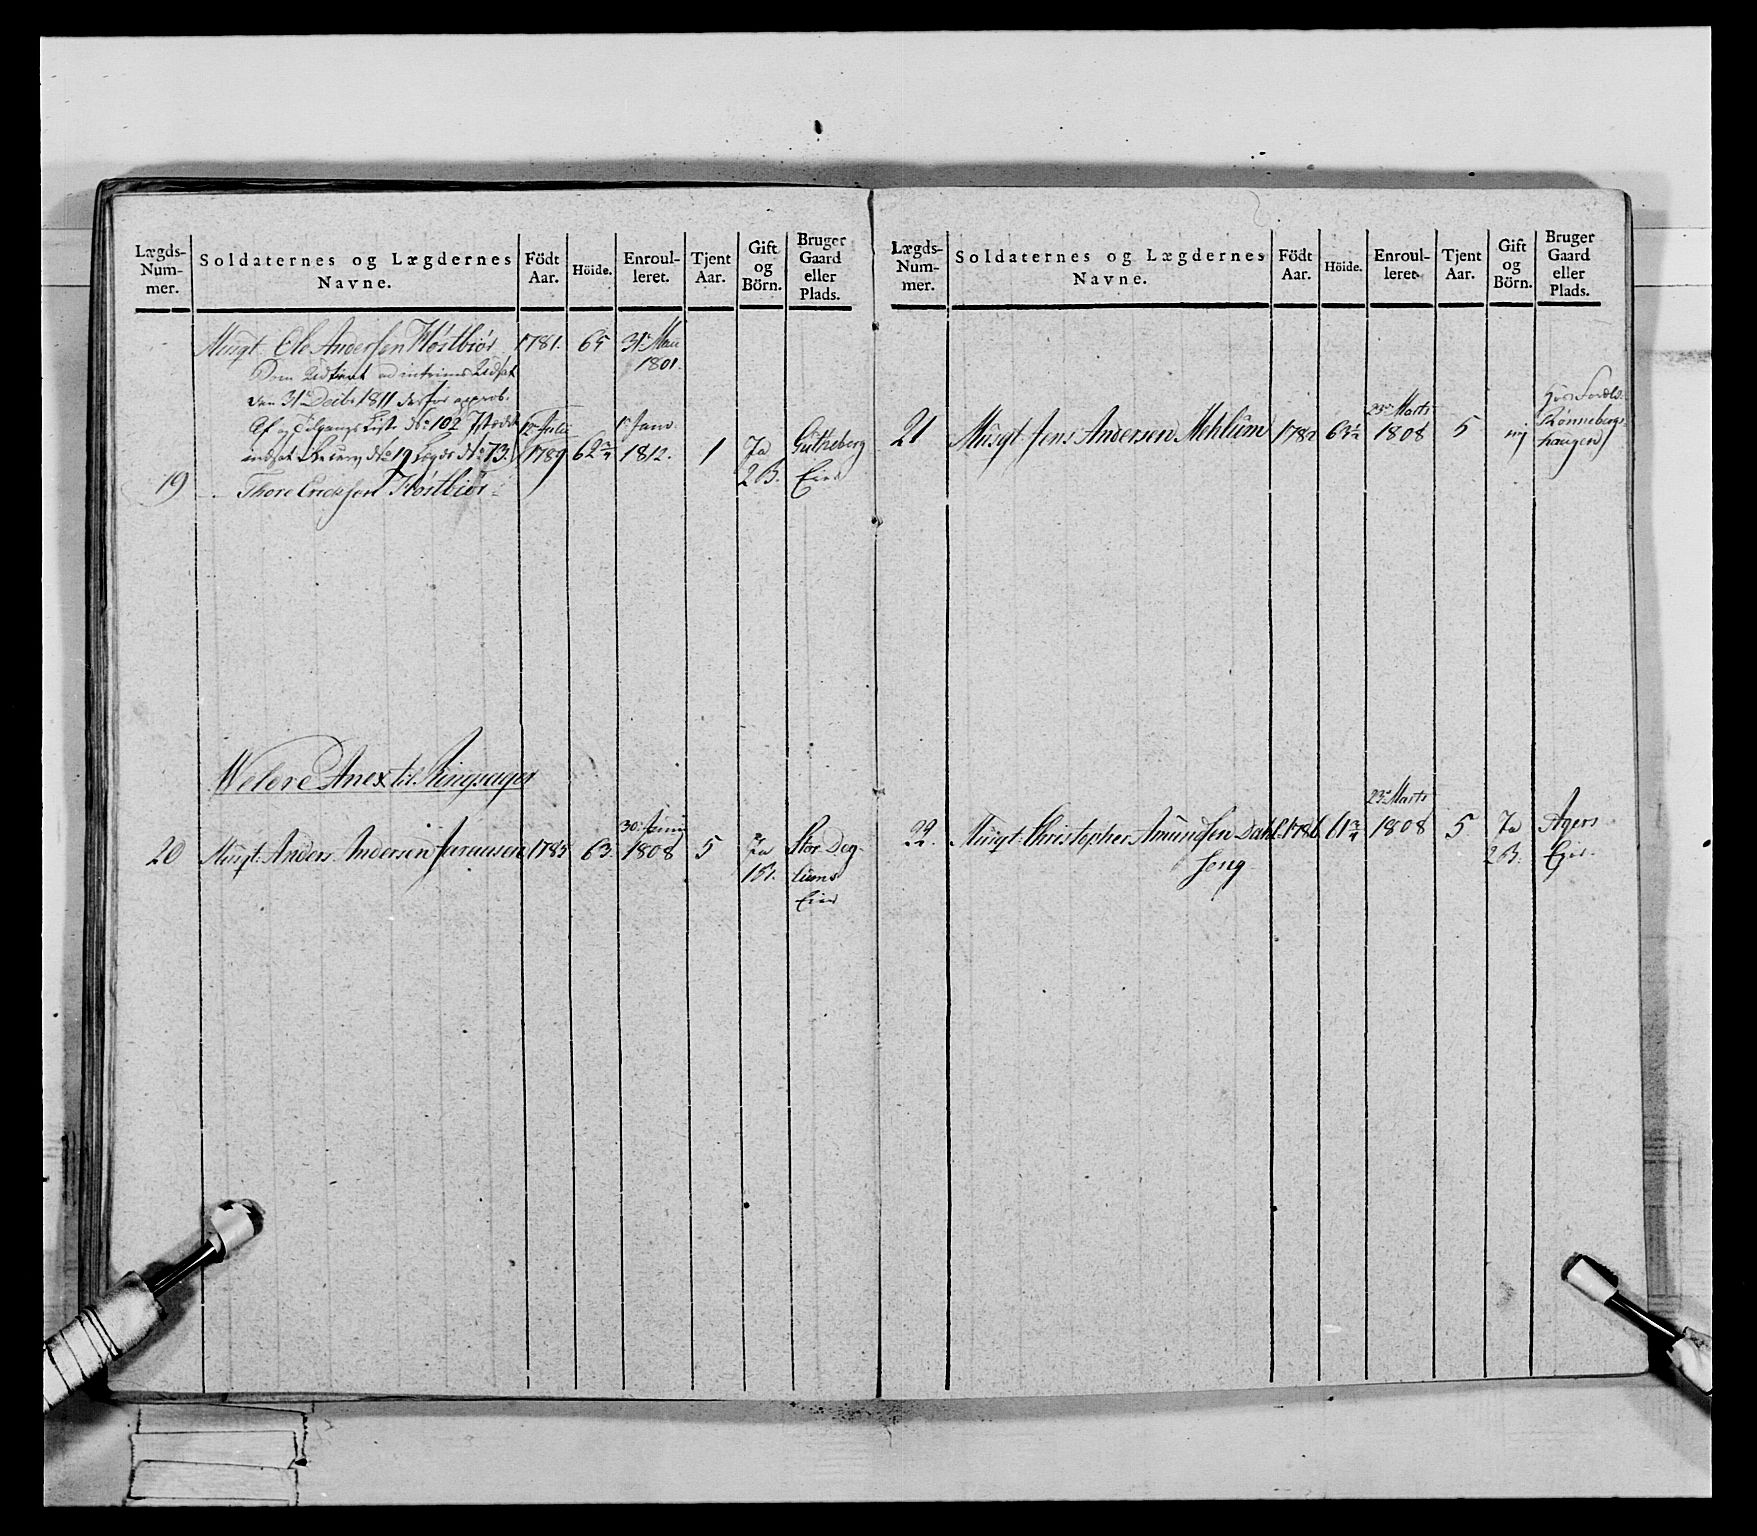 Lægds-
Num-
mer.
Soldaternes og Lægdernes
Navne.
Födt
Aar.
Höide.
Enroul-
leret.
Tjent
Aar.
Gift
og
Börn.
Bruger
Gaard
eller
Plads.
Musqt. Ole Andersen Høstbiør 1781. 65 31 Maii
1801.
Som Udtient ad interims Udsat
den 31 Decbr 1811 derfor approb.
Af og Tilgangs List. No 102 Istædet
12 Julii
1ste Janv.
indsat Recrut No 19 Lægds No 73. 1789 62 3/4 1812. 1 Ja
2 B.
Guttheberg
Eier
19 Thore Ericksen Høstbiør
Weldre Anex til Ringsager
20 Musqt. Anders Andersen 1785 63. 30 Junij
1808 5 Ja
1 B.
Stor Deg-
lums
Eier
Lægds-
Num-
mer.
Soldaternes og Lægdernes
Navne.
Födt
Aar.
Höide.
Enroul-
leret.
Tjent
Aar.
Gift
og
Börn.
Bruger
Gaard
eller
Plads.
21 Musqt. Jens Andersen Mehlum 1782 63 1/2 23 Marts
1808 5 nej
Hos Foræld.
Rønnebergs-
haugen
22. Musqt. Christopher Amundsen Dahl 1786 61 3/4 23 Marts
1808 5 Ja
2 B.
Agers
Eier.
seng